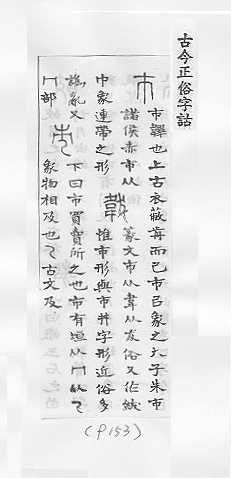 古今正俗字詁
巿 巿韠也上古衣蔽前而已巿㠯象之天子朱巿
諸侯赤巿从 韍 篆文巿从韋从犮俗又作紱
巾象連帶之形 惟巿形與市井字形近俗多
譌亂又 下曰市買賣所之也市有垣从冂从乁
冂部 市 象物相及也乁古文及
(P153)